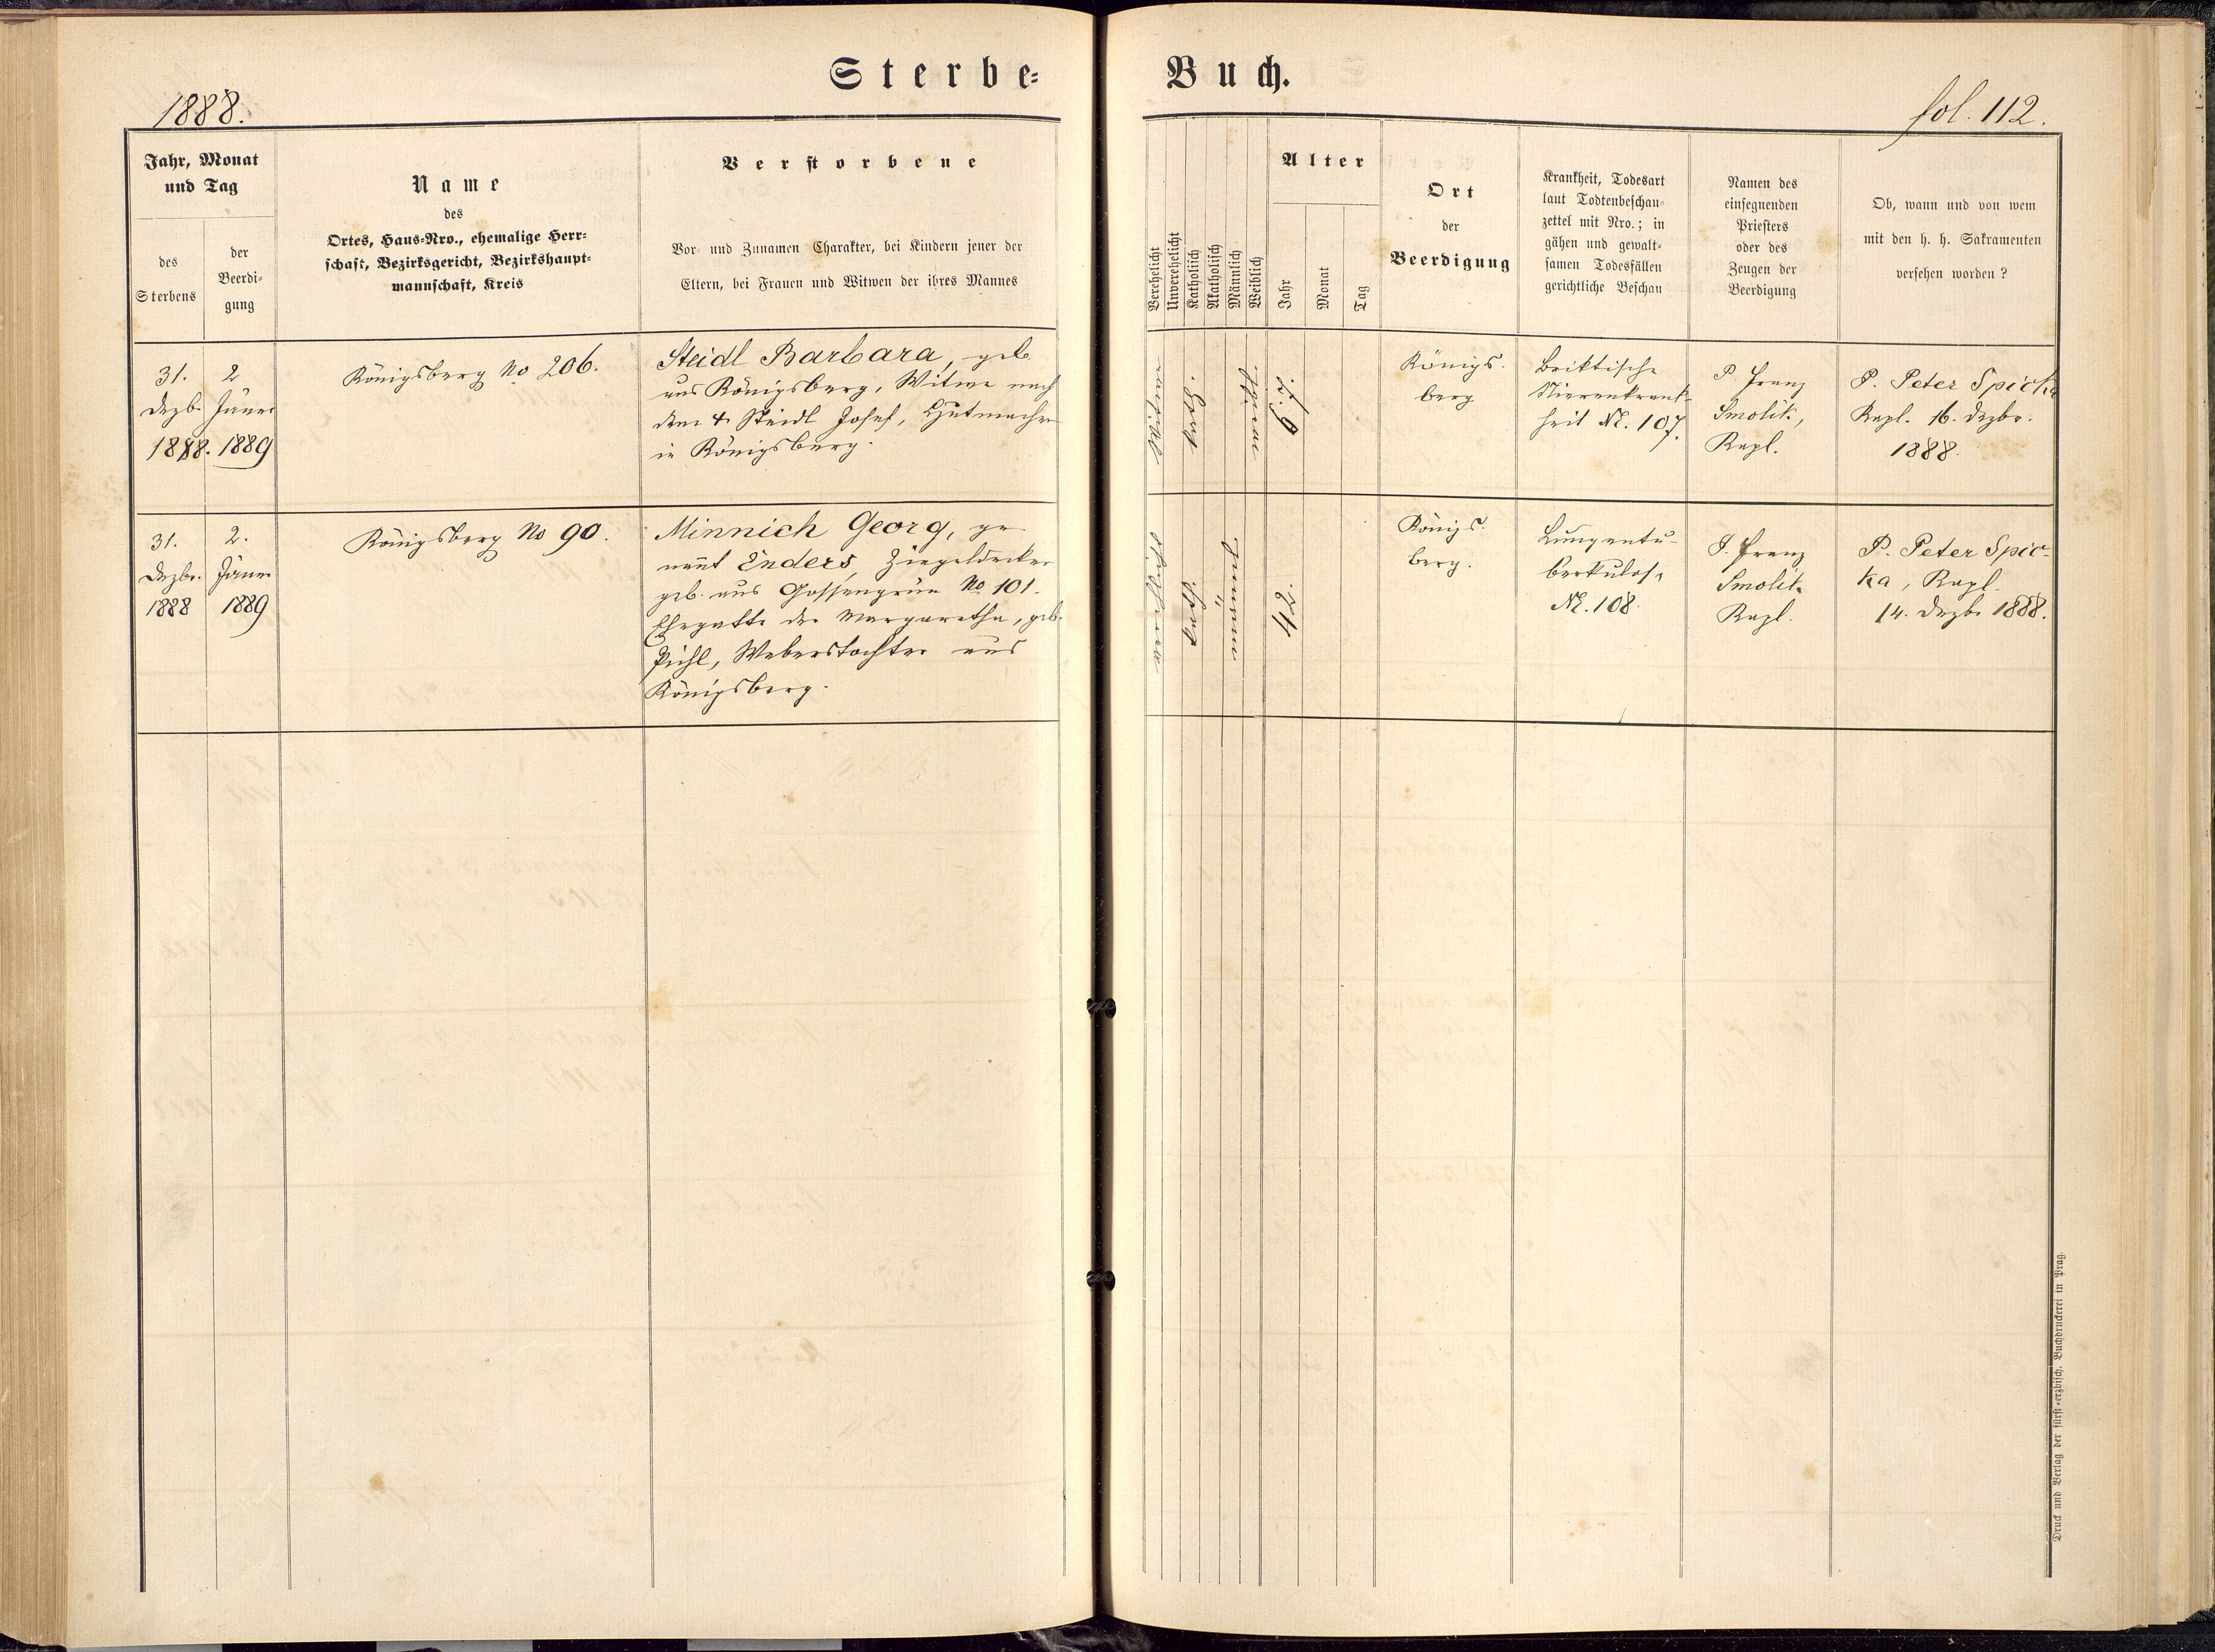 Sterbe-
Buch.
1888.
fol. 112.
Jahr, Monat
und Tag
des
Sterbens
der
Beerdi-
gung
Name
des
Ortes, Haus-Nro., ehemalige Herr-
schaft, Bezirksgericht, Bezirkshaupt-
mannschaft, Kreis
Verstorbene
Vor- und Zunamen Charakter, bei Kindern jener der
Eltern, bei Frauen und Witwen der ihres Mannes
Verehelicht
Unverehelicht
Katholisch
Akatholisch
Männlich
Weiblich
Alter
Jahr
Monat
Tag
Ort
der
Beerdigung
Krankheit, Todesart
laut Todtenbeschau-
zettel mit Nro.; in
gähen und gewalt-
samen Todesfällen
gerichtliche Beschau
Namen des
einsegnenden
Priesters
oder des
Zeugen der
Beerdigung
Ob, wann und von wem
mit den h. h. Sakramenten
versehen worden?
31.
Dezb.
1888.
2
Jäner
1889
Königsberg No 206.
Steidl Barbara, geb.
aus Königsberg, Witwe nach
dem † Steidl Josef, Hutmacher
in Königsberg.
kath.
67.
Königs.
berg
Briktische
Nierenkrank-
heit N. 107.
P. Franz
Smolik,
Kapl.
P. Peter Spicka
Kapl. 16. Dezbr.
1888.
31.
Dezbr.
1888
2.
Jäner
1889
Königsberg No 90.
Minnich Georg, ge
nannt Enders, Ziegeldecker
geb. aus Gossengrün No 101.
Ehegatte der Margaretha, geb.
Pichl, Weberstochter aus
Königsberg.
kath.
42.
Königs.
berg.
Lungentu-
berkulose
N. 108.
P. Franz
Smolik
Kapl.
P. Peter Spic-
ka, Kapl.
14. Dezb. 1888.
Druck und Verlag der fürst-erzbisch. Buchdruckerei in Prag.